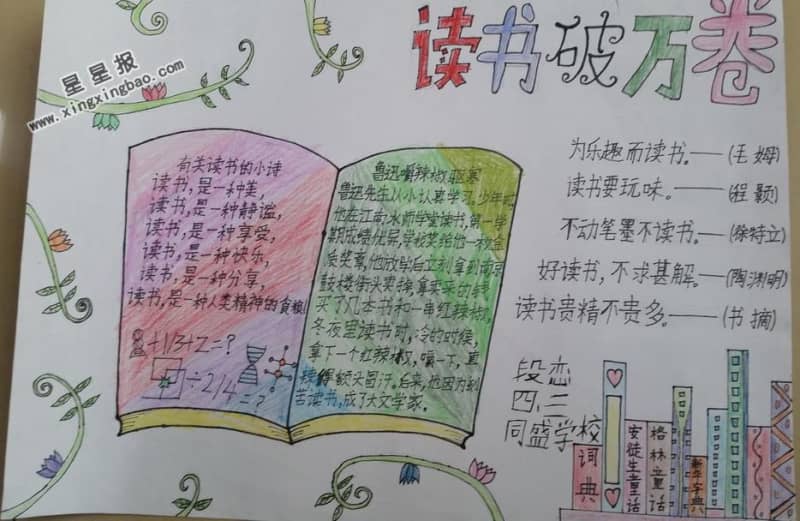 星星报
www.xingxingbao.com
读书破万卷
有关读书的小诗
读书,是一种美,
读书,是一种静谧,
读书,是一种享受,
读书,是一种快乐,
读书,是一种分享,
读书,是一种人类精神的食粮!
+1/3+2=?
÷2/4=?
鲁迅嚼辣椒驱寒
鲁迅先生从小认真学习。少年时,
他在江南水师学堂读书,第一学
期成绩优异,学校奖给他一枚金
质奖章。他放学后立刻拿到南京
鼓楼街头卖掉,
买了几本书和一串红辣椒。
冬夜里读书时,冷的时候,
拿下一个红辣椒,嚼一下,直
辣得额头冒汗。后来,他因为刻
苦读书,成了大文学家。
为乐趣而读书。——(毛姆)
读书要玩味。——(程颢)
不动笔墨不读书。——(徐特立)
好读书,不求甚解。——(陶渊明)
读书贵精不贵多。——(书摘)
段恋
四.二
同盛学校
词典
安徒生童话
格林童话
新华字典